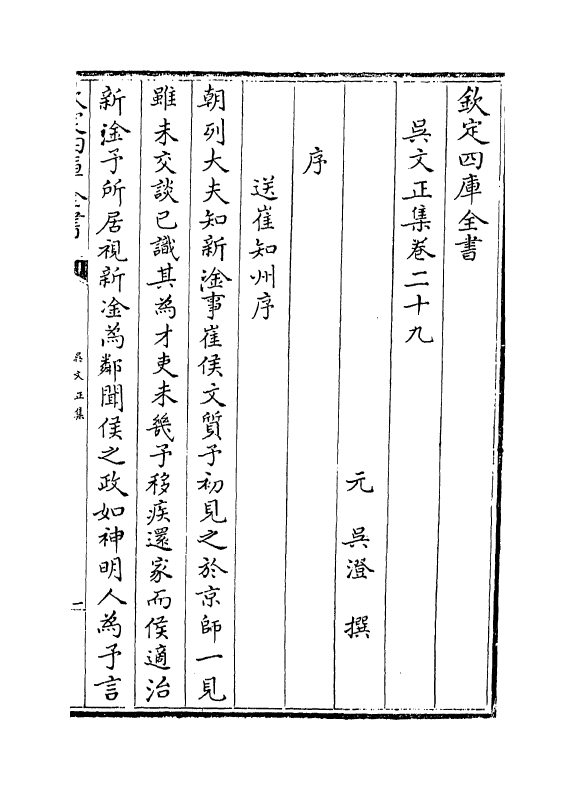 欽定四庫全書
吳文正集卷二十九
元　吳澄　撰
序
送崔知州序
朝列大夫知新淦事崔侯文質予初見之於京師一見
雖未交談已識其為才吏未幾予移疾還家而侯適治
新淦予所居視新淦為鄰聞侯之政如神明人為予言
吳文正集
一